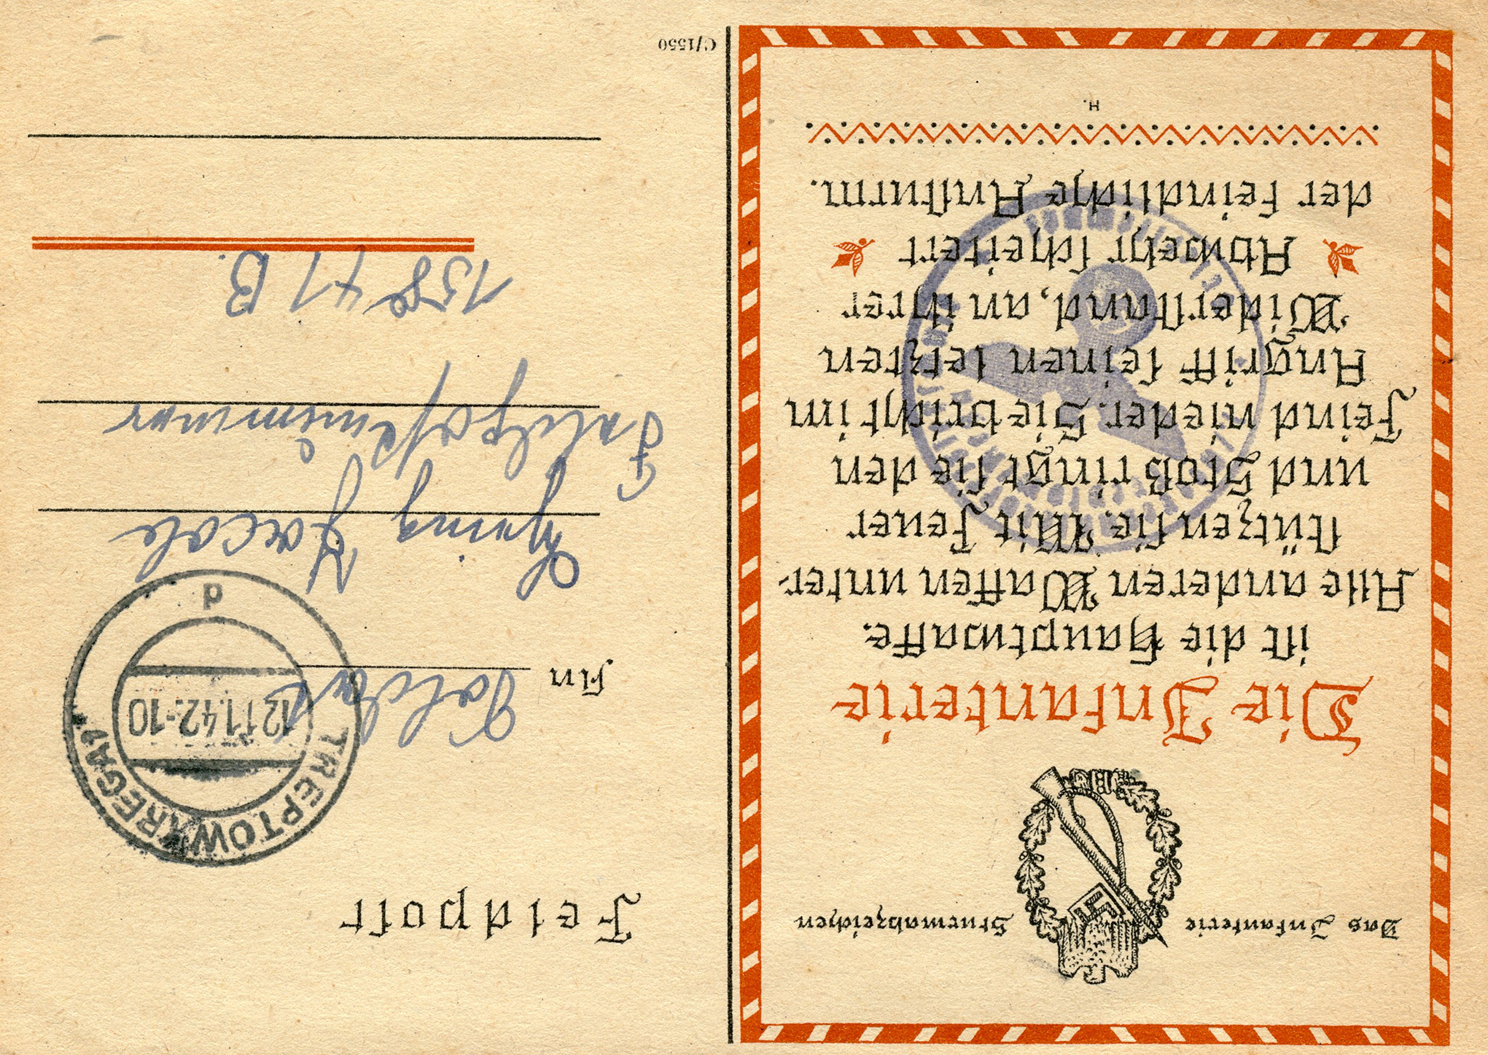 Das Infanterie Sturmabzeichen
Die Infanterie
ist die Hauptwaffe.
Alle anderen Waffen unter-
stützen sie. Mit Feuer
und Stoß ringt sie den
Feind nieder. Sie bricht im
Angriff seinen letzten
Widerstand, an ihrer
Abwehr scheitert
der feindliche Ansturm.
H.
Feldpost
TREPTOW (REGA)
12.11.42.-10
d
An Soldat
Jacob
Feldpostnummer
15871 B.
C/1550